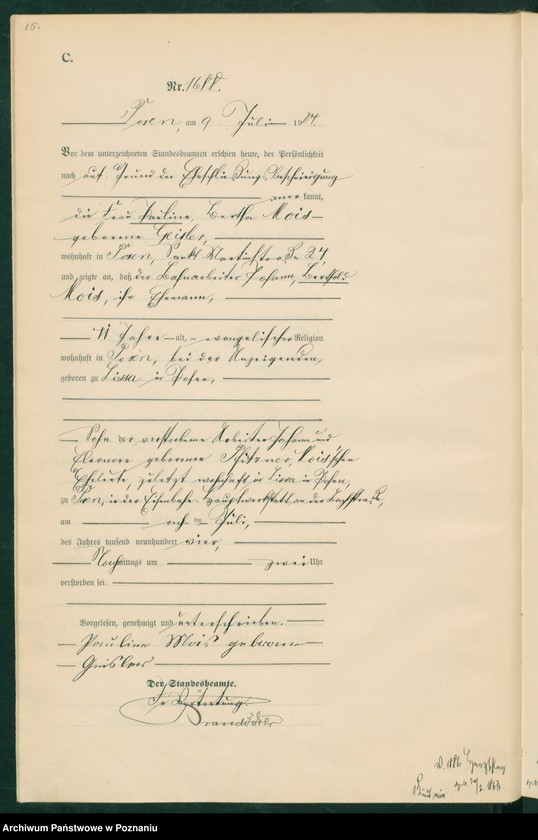 16.
C.
Nr. 1688.
Posen, am 9 Juli 1904.
Vor dem unterzeichneten Standesbeamten erschien heute, der Persönlichkeit
nach auf Grund der Eheschließungsbescheinigung
anerkannt,
die Frau Pauline, Bertha Mois
geborene Geisler,
wohnhaft in Posen, Sankt Martinstraße 24,
und zeigte an, daß der Bahnarbeiter Johann, Berthold
Mois, ihr Ehemann,
Jahre alt, evangelischer Religion
wohnhaft in Posen, bei der Anzeigenden,
geboren zu Lissa in Posen,
Sohn der verstorbenen Arbeiter Johann und
Eleonore geborene Pfitzner, Mois'schen
Eheleute, zuletzt wohnhaft in Lissa in Posen,
zu Posen, in der Eisenbahn-Hauptwerkstatt an der
am acht ten Juli,
des Jahres tausend neunhundert vier,
Nachmittags um zwei Uhr
verstorben sei.
Vorgelesen, genehmigt und unterschrieben.
Pauline Mois geborene
Geisler
Der Standesbeamte.
In Vertretung
Archiwum Państwowe w Poznaniu